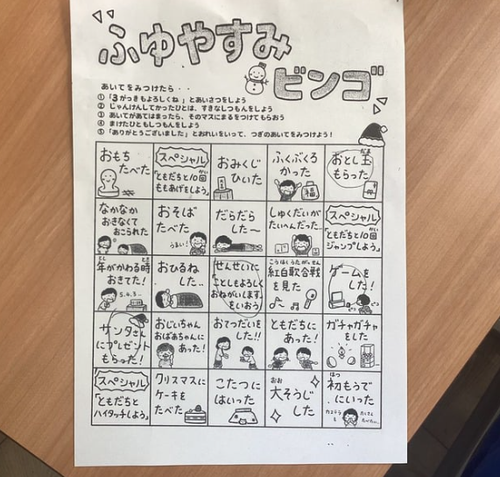 ふゆやすみ
ビンゴ
あいてをみつけたら・・
① 「3がっきもよろしくね。」とあいさつをしよう
② じゃんけんしてかったひとは、すきなしつもんをしよう
③ あいてがあてはまったら、そのマスにまるをつけてもらおう
④ まけたひともしつもんをしよう
⑤ 「ありがとうございました」とおれいをいって、つぎのあいてをみつけよう!
おもち
たべた
スペシャル
「ともだちと10回
ももあげをしよう」
おみくじ
ひいた
ふくぶくろ
かった
福
おとし玉
もらった
なかなか
おきなくて
おこられた
おそば
たべた
うまい!
だらだら
した〜
しゅくだいが
たいへんだった...
スペシャル
「ともだちと10回
ジャンプしよう」
年がかわる時
おきてた!
5.4.3..
おひるね
した..
せんせいに
「ことしもよろしく
おねがいします」
をいおう
こうはくうたがっせん
紅白歌合戦
を見た
ゲームを
した!
サンタさん
にプレゼント
もらった!
おじいちゃん
おばあちゃんに
あった!
おてつだいを
した!!
ともだちに
あった!
ガチャガチャ
をした
スペシャル
「ともだちと
ハイタッチしよう」
クリスマスに
ケーキを
たべた
こたつに
はいった
おお
大そうじ
した
はつ
初もうで
にいった